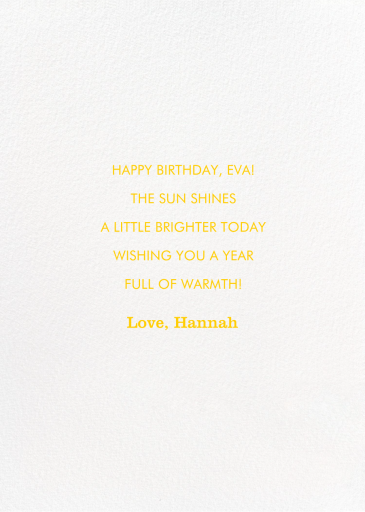 HAPPY BIRTHDAY, EVA!
THE SUN SHINES
A LITTLE BRIGHTER TODAY
WISHING YOU A YEAR
FULL OF WARMTH!
Love, Hannah